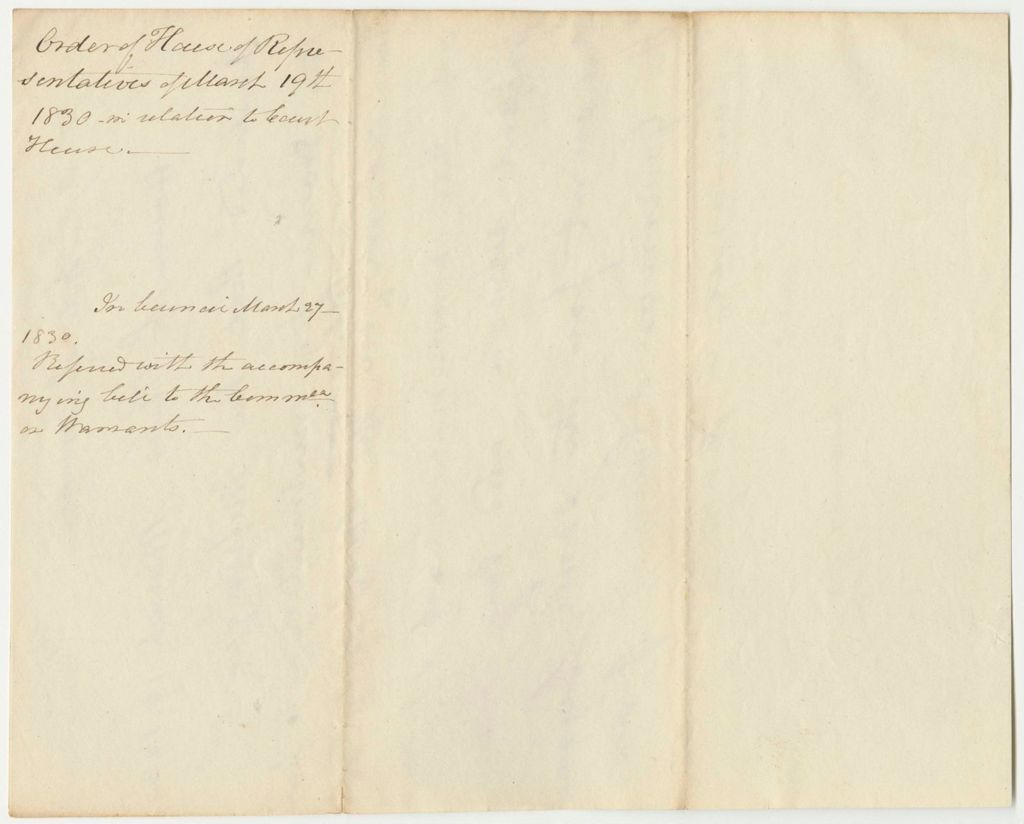 Order of House of Repre-
sentatives of March 19th
1830 - in relation to Court
House.
In Council March 27
1830.
Referred with the accompa-
nying bill to the Commee
on Warrants.